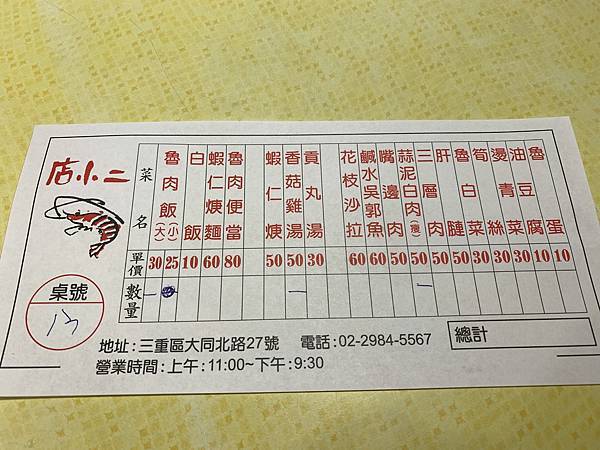 店小二
菜名
魯肉飯(大)(小)
白飯
蝦仁焿麵
魯肉便當
蝦仁焿
香菇雞湯
貢丸湯
花枝沙拉
鹹水吳郭魚
嘴邊肉
蒜泥白肉(瘦)
三層肉
肝
魯白菜
筍絲
燙青菜
油豆腐
魯蛋
單價 30 25 10 60 80 50 50 30 60 60 50 50 50 50 30 30 30 10 10
數量 一 一 一
桌號
13
總計
地址:三重區大同北路27號 電話:02-2984-5567
營業時間:上午:11:00~下午:9:30